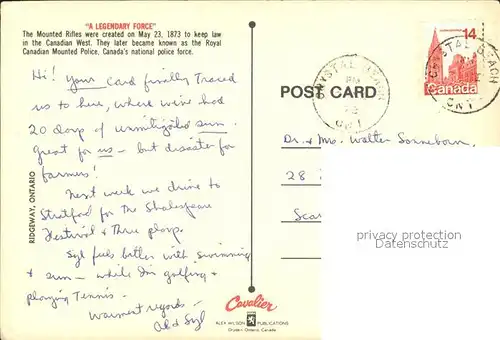 "A LEGENDARY FORCE"
The Mounted Rifles were created on May 23, 1873 to keep law
in the Canadian West. They later became known as the Royal
Canadian Mounted Police, Canada's national police force.
Hi! Your card finally traced
us to here, where we've had
20 days of unmitigated sun.
Great for us - but disaster for
farmers!
Next week we drive to
Stratford for the Shakespeare
Festival & three plays.
Syl feels better with swimming
& sun - while I'm golfing &
playing tennis.
Warmest regards -
Al & Syl
RIDGEWAY, ONTARIO
Cavalier
ALEX WILSON PUBLICATIONS
Dryden Ontario, Canada
POST CARD
CRYSTAL BEACH
ONT
14
Canada
CRYSTAL BEACH
ONT
Dr. & Mrs. Walter Sonneborn,
28
Scar
privacy protection
Datenschutz